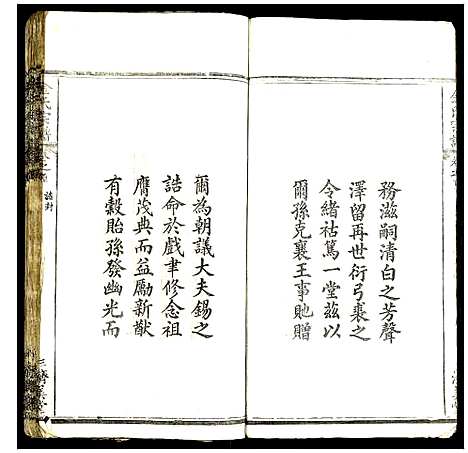 務滋嗣清白之芳聲
澤留再世衍弓裘之
令緒祜篤一堂茲以
爾孫克襄王事貤贈
爾為朝議大夫錫之
誥命於戲聿修念祖
膺茂典而益勵新猷
有穀貽孫發幽光而
誥封